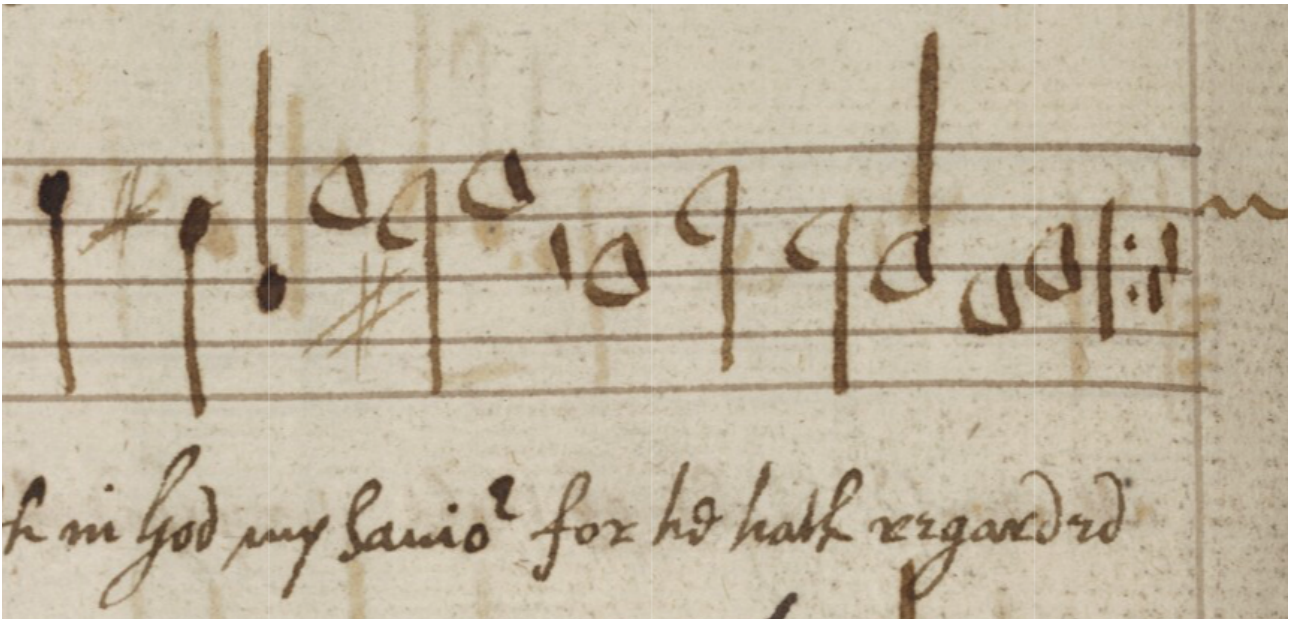 h in God my Sauior for he hath regarded